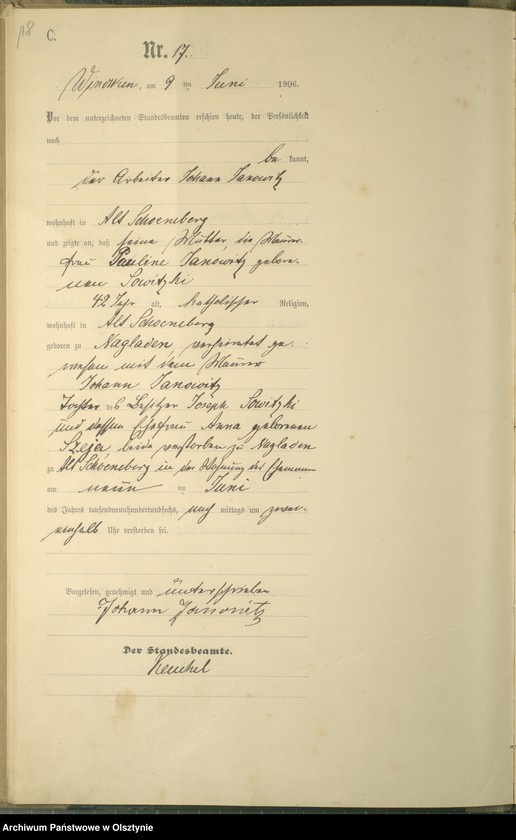 18
C.
Nr. 17.
am 9 ten Juni 1906.
Vor dem unterzeichneten Standesbeamten erschien heute, der Persönlichkeit
nach
be kannt,
der Arbeiter Johann Janowitz
wohnhaft in Alt Schoeneberg
und zeigte an, daß seine Mutter, die Maurer-
frau Pauline Janowitz gebore-
nen Sowitzki
42 Jahr alt, katholischer Religion,
wohnhaft in Alt Schoeneberg
geboren zu Nagladen, verheiratet ge-
wesen mit dem Maurer
Johann Janowitz
Tochter des Besitzer Joseph Sowitzki
und dessen Ehefrau Anna geborenen
Szeja, beide verstorben zu Nagladen
zu Alt Schoeneberg in der Wohnung des Ehemann
am neun ten Juni
des Jahres tausendneunhundertundsechs, nach mittags um zwei-
einhalb Uhr verstorben sei.
Vorgelesen, genehmigt und unterschrieben
Johann Janowitz
Der Standesbeamte.
Archiwum Państwowe w Olsztynie